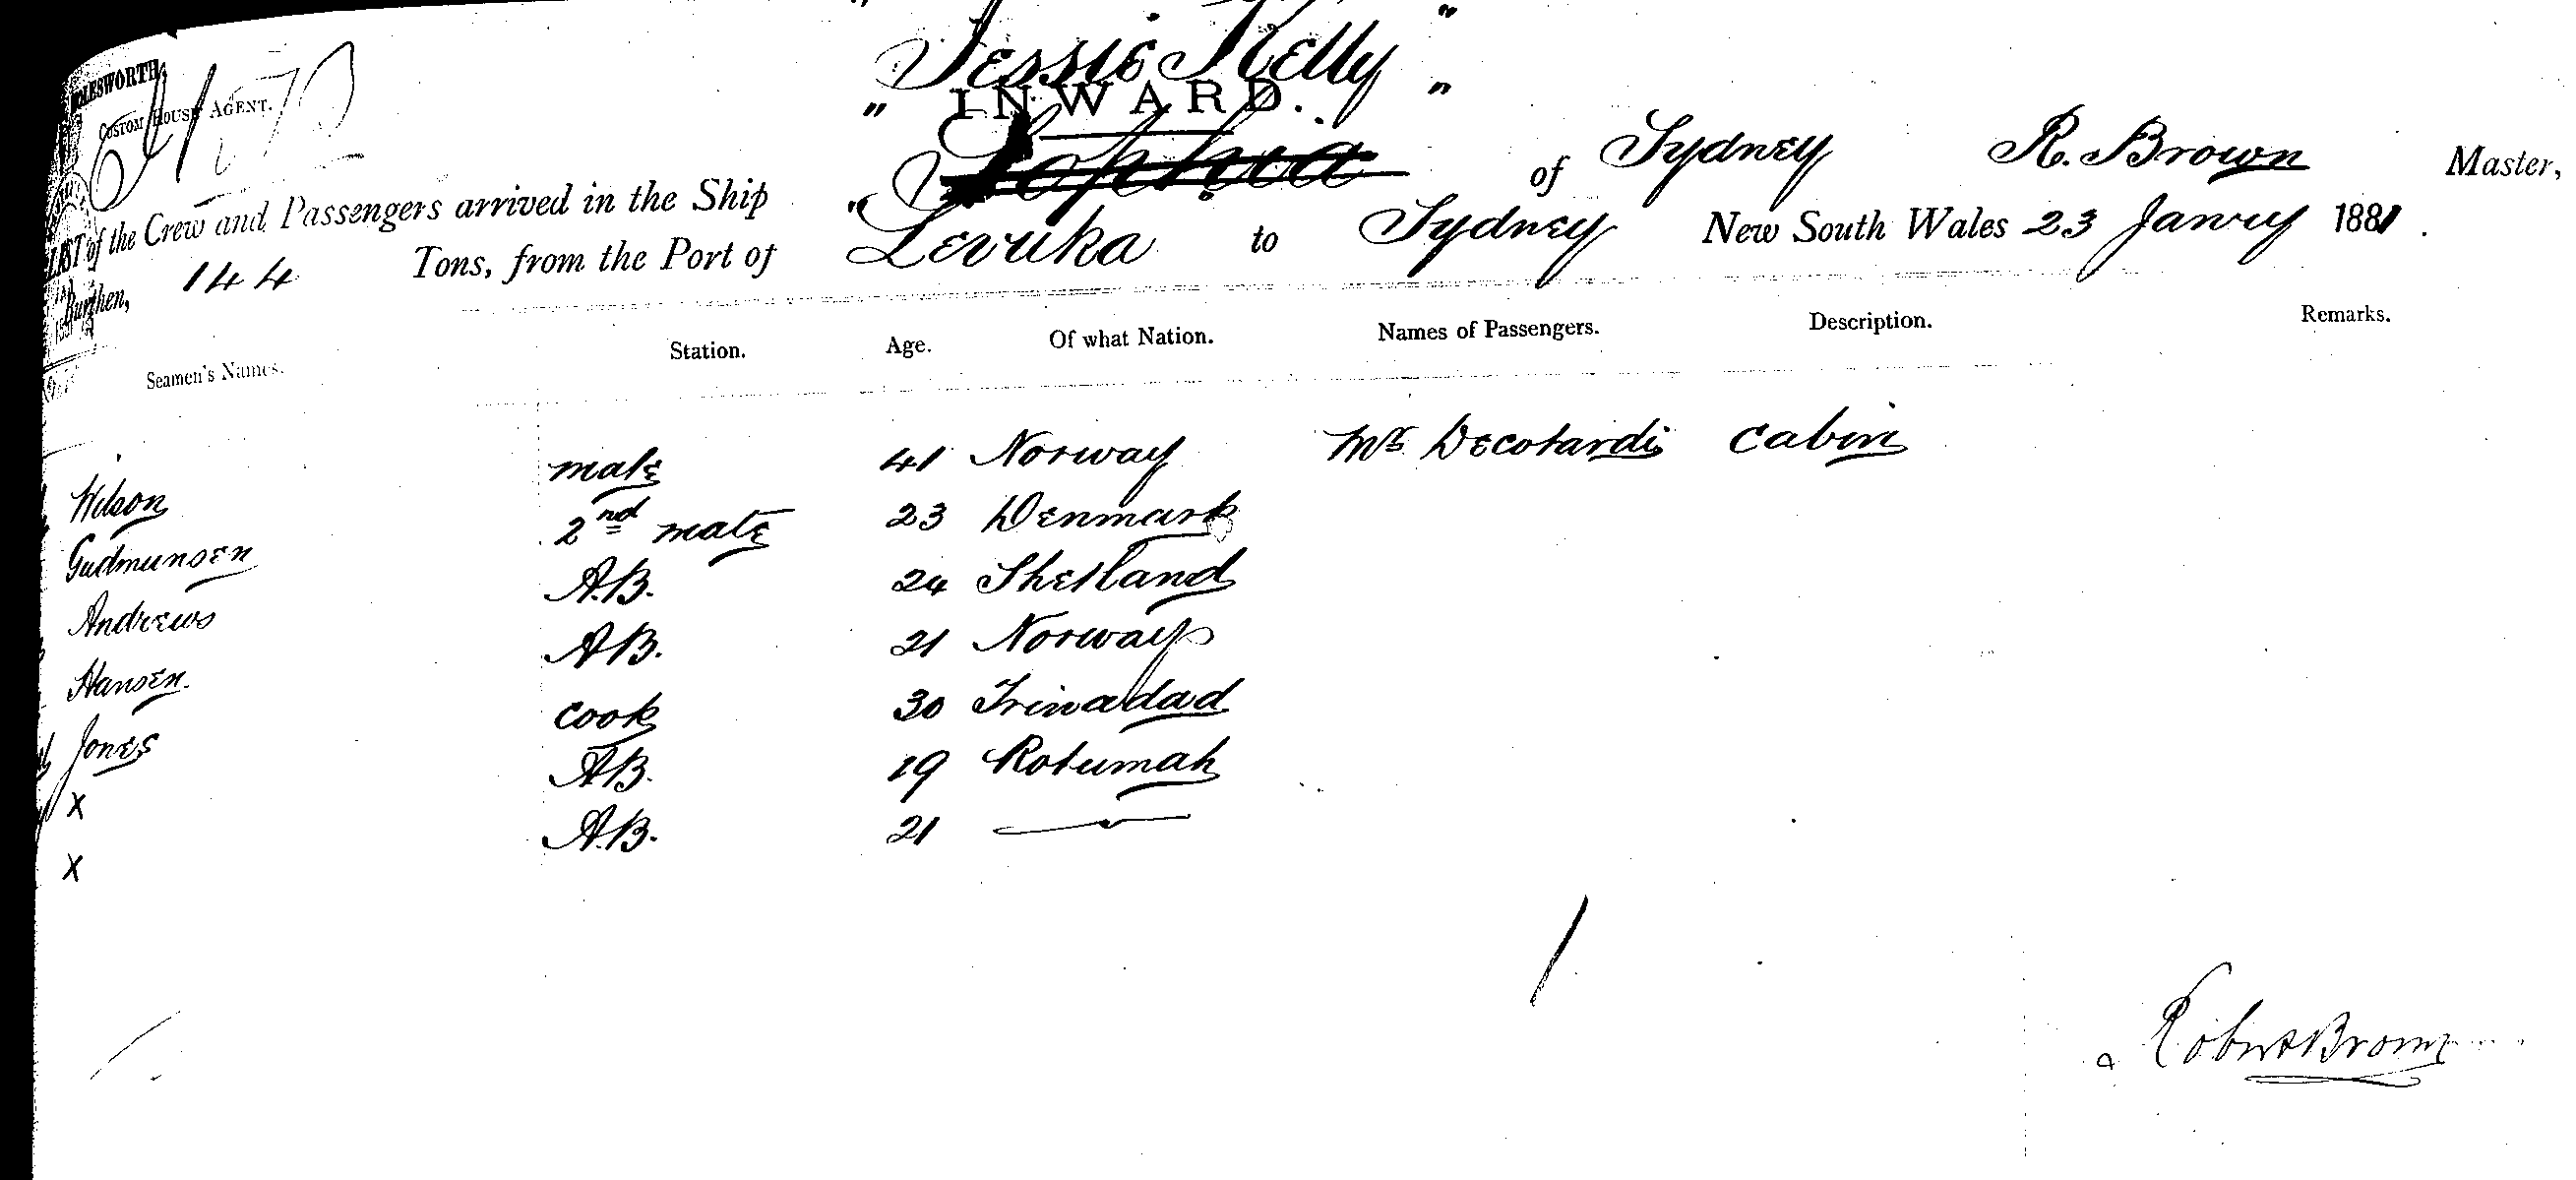 MOLESWORTH,
CUSTOM HOUSE AGENT.
" Jessie Kelly "
INWARD.
LIST of the Crew and Passengers arrived in the Ship " Sophia " of Sydney R. Brown Master,
Burthen, 144 Tons, from the Port of Levuka to Sydney New South Wales 23 Janry 1881.
Seamen's Names. Station. Age. Of what Nation. Names of Passengers. Description. Remarks.
Wilson mate 41 Norway Mrs Decotardi Cabin
Gudmunsen 2nd mate 23 Denmark
Andrews A.B. 24 Shetland
Hansen A.B. 21 Norway
Jones cook 30 Trinadad
X A.B. 19 Rotumah
X A.B. 21 —
Robert Brown